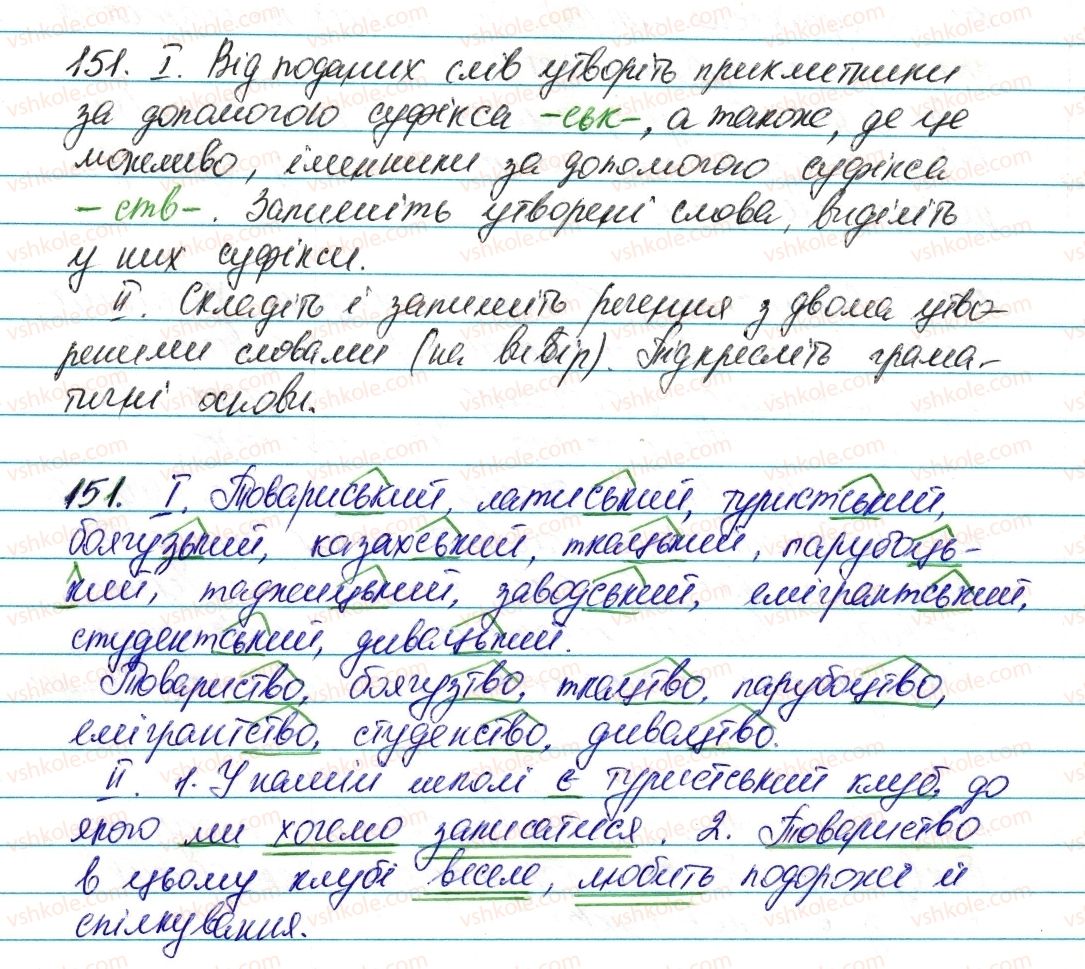 151. І. Від поданих слів утворіть прикметники
за допомогою суфікса -ськ-, а також, де це
можливо, іменники за допомогою суфікса
-ств-. Запишіть утворені слова, виділіть
у них суфікси.
ІІ. Складіть і запишіть речення з двома утво-
реними словами (на вибір). Підкресліть грама-
тичні основи.
151. І. Товариський, латиський, туристський,
боягузький, казахський, ткацький, парубоць-
кий, таджицький, заводський, емігрантський,
студентський, дивацький.
Товариство, боягузтво, ткацтво, парубоцтво,
емігрантство, студенство, дивацтво.
ІІ. 1. У нашій школі є туристський клуб, до
якого ми хочемо записатися. 2. Товариство
в цьому клубі веселе, любить подорожі й
спілкування.